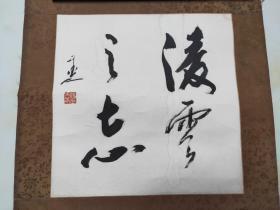 凌雲
之志